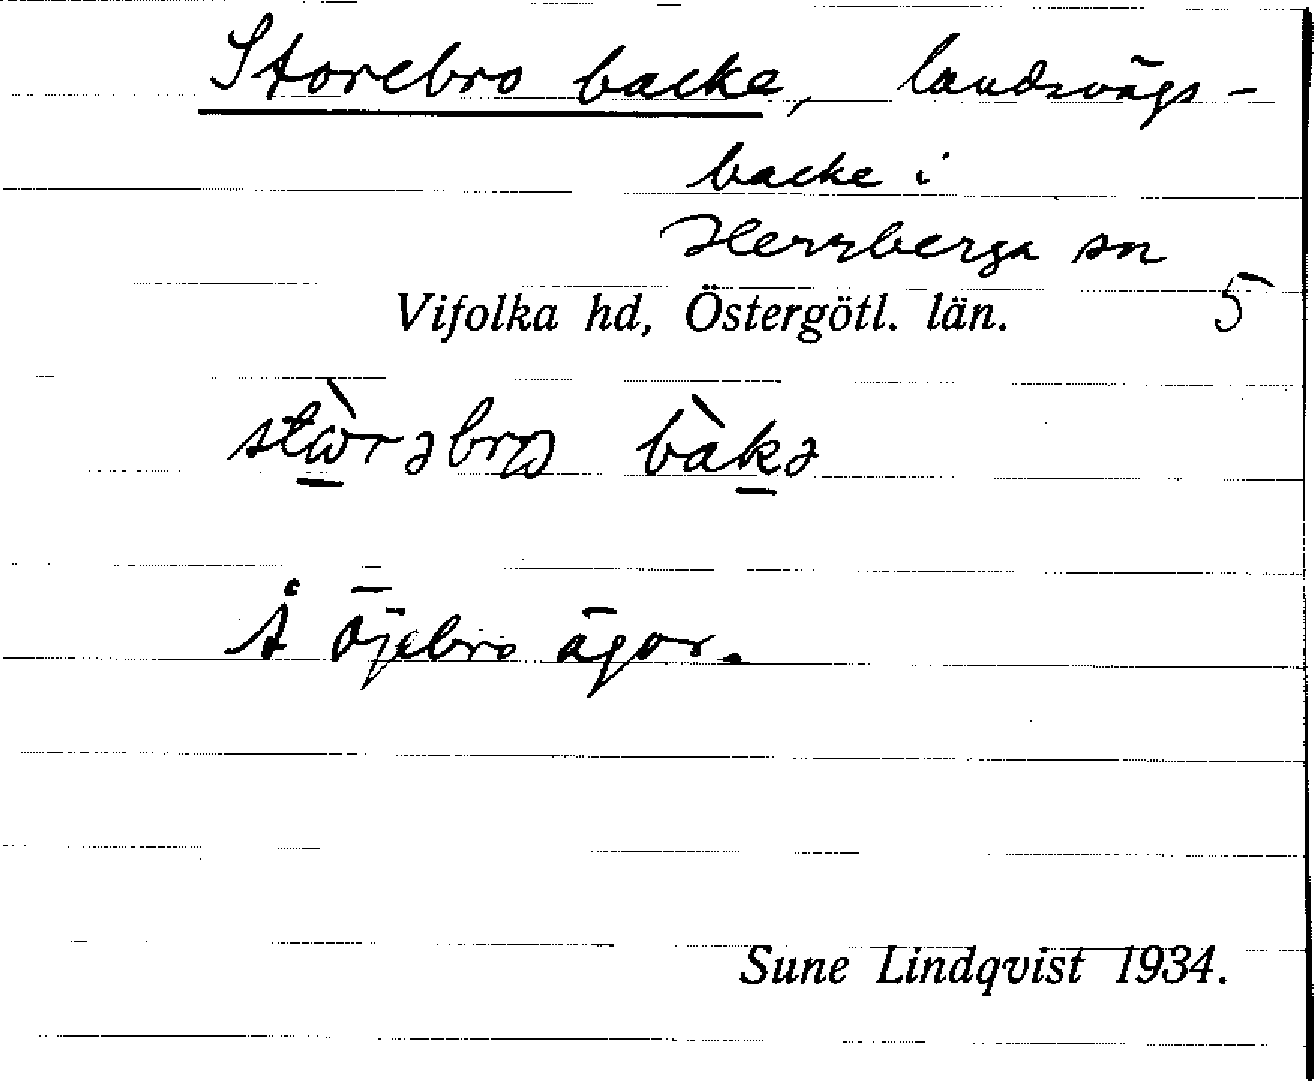 Storebro backe, landsvägs-
backe i
Herrberga sn
Vifolka hd, Östergötl. län. 5
stὼrəbrɷ bàkə
Å Öjebro ägor.
Sune Lindqvist 1934.